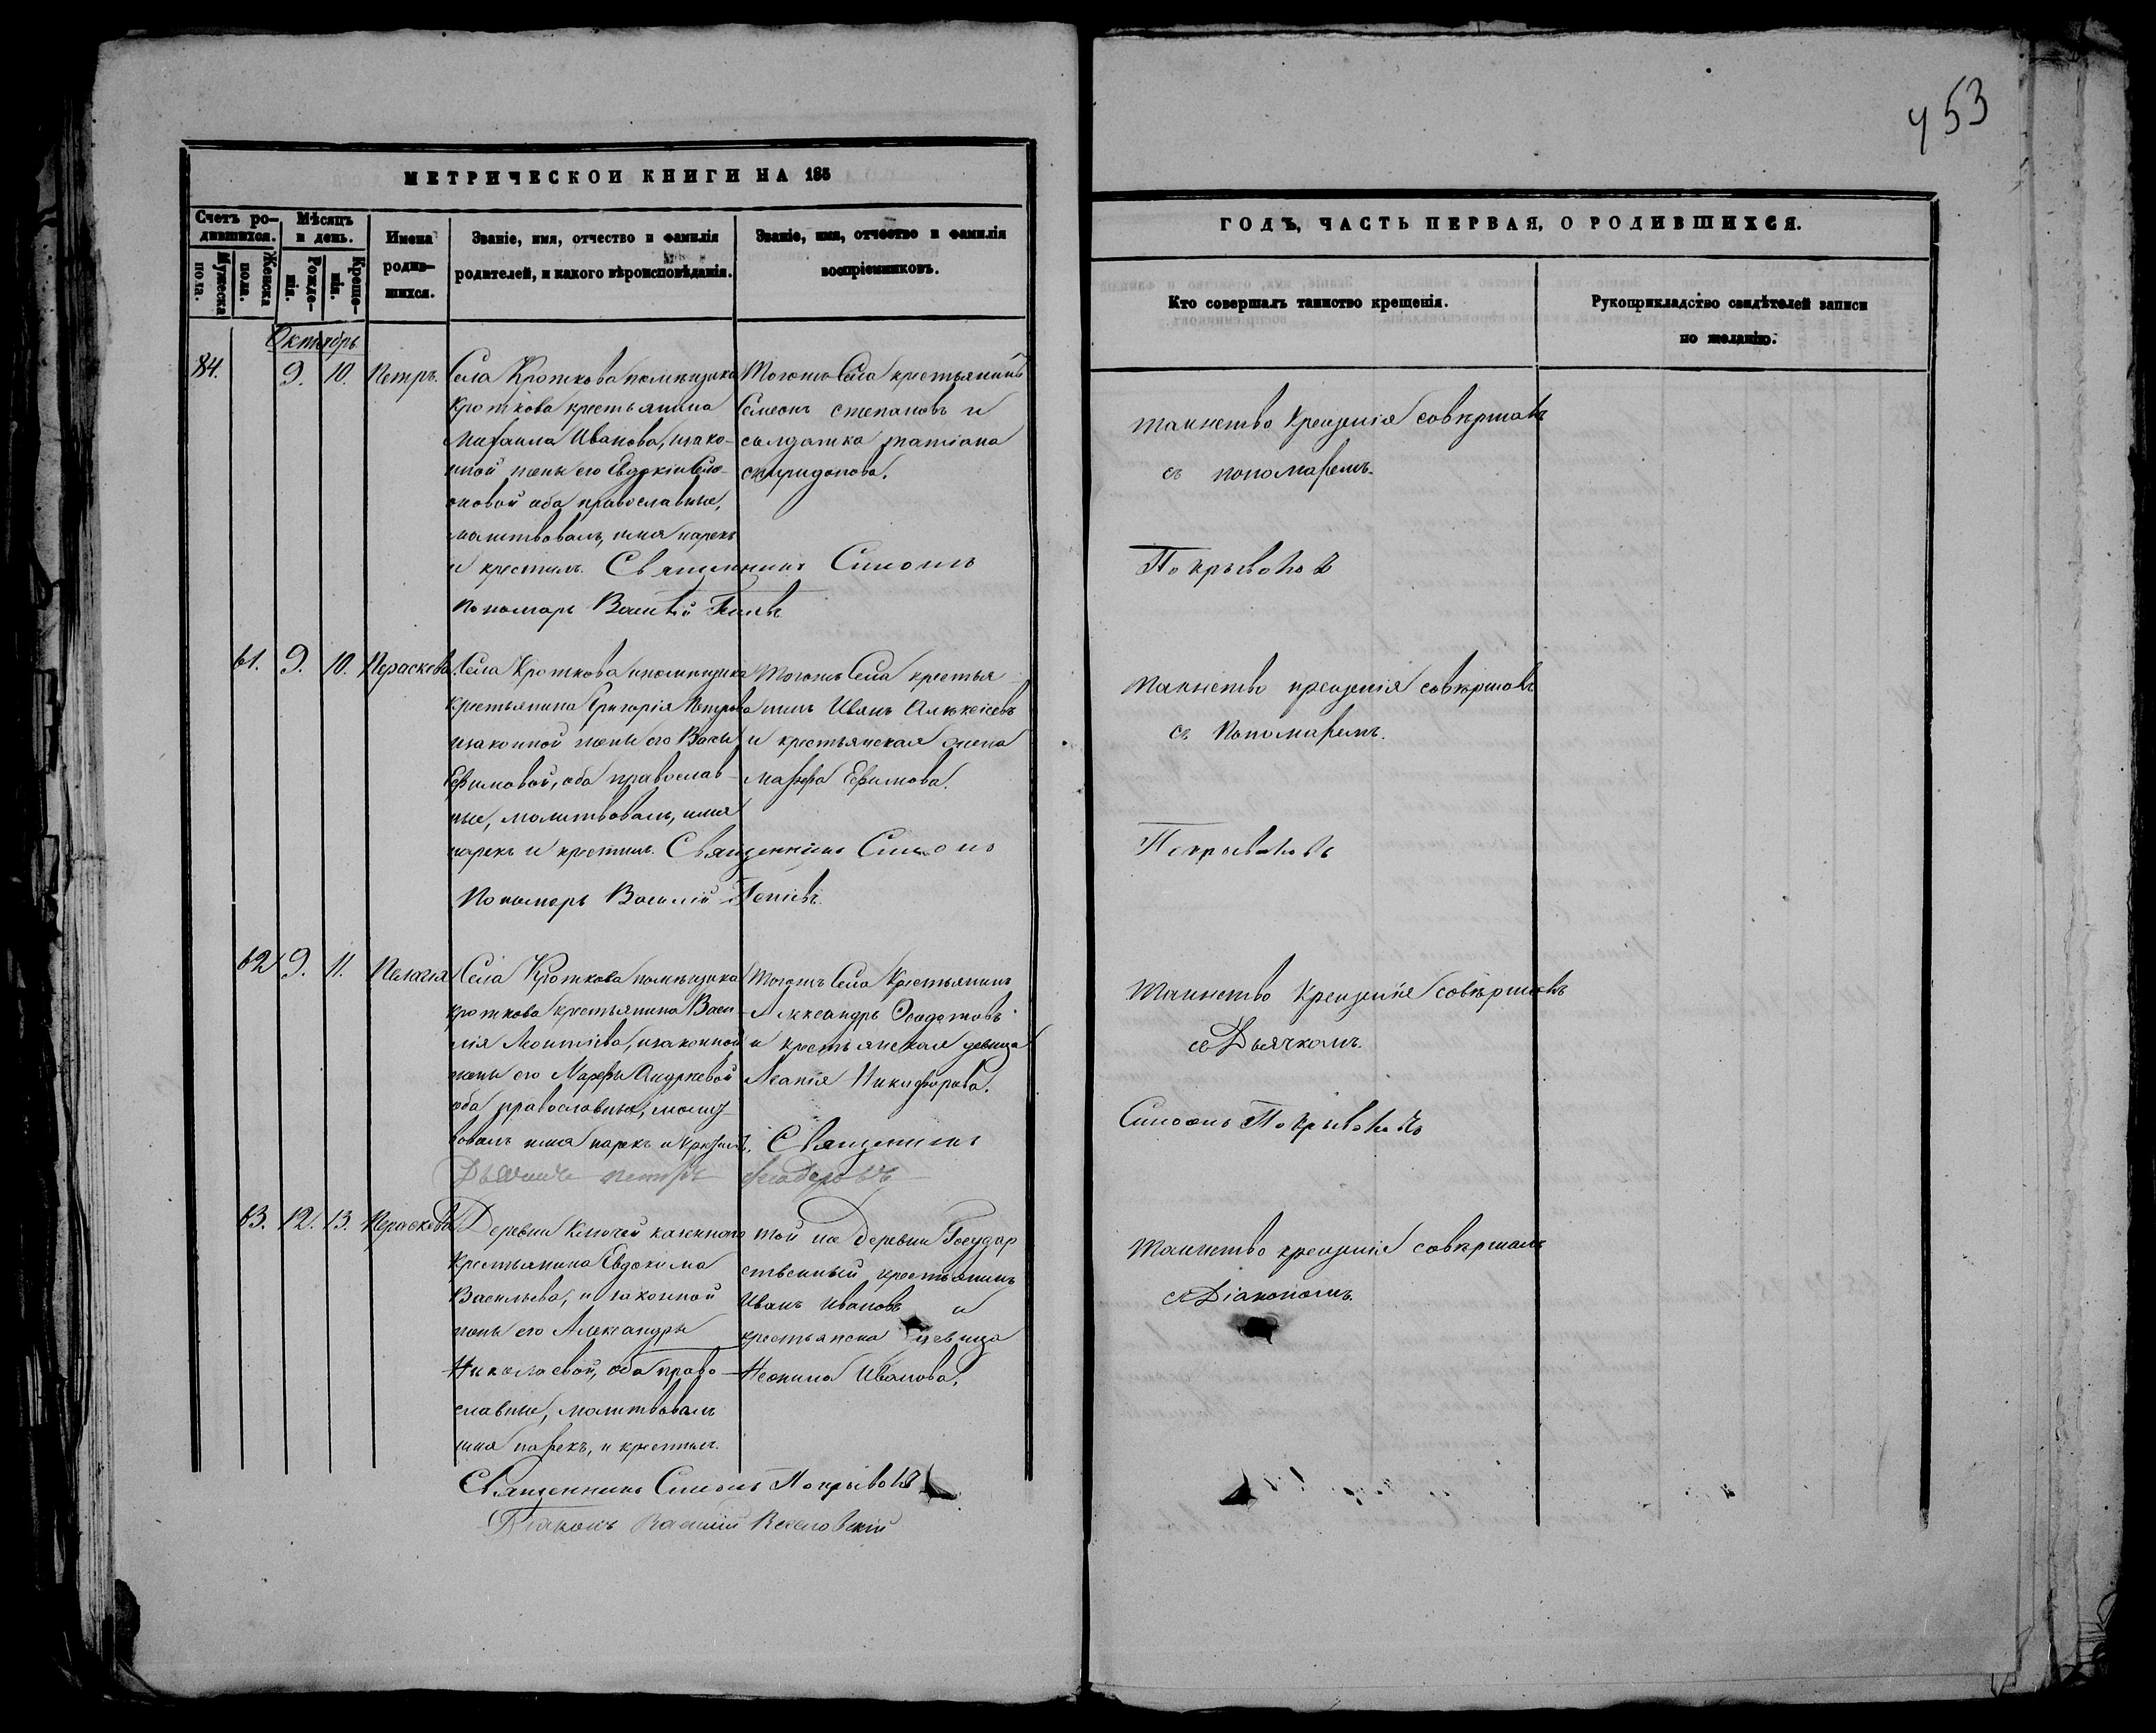 453
МЕТРИЧЕСКОИ КНИГИ НА 185
Счетъ ро-
дившихся.
Мужеска
пола.
Женска
пола.
Мѣсяцъ
и день.
Рожде-
нія.
Креще-
нія.
Имена
родив-
шихся.
Званіе, имя, отчество и фамилія
родителей, и какого вѣроисповѣданія.
Званіе, имя, отчество и фамилія
воспріемниковъ.
ГОДЪ, ЧАСТЬ ПЕРВАЯ, О РОДИВШИХСЯ.
Кто совершалъ таинство крещенія.
Рукоприкладство свидѣтелей записи
по желанію.
Октябрь
84. 9. 10. Петръ.
Села Кроткова помѣщика
Кроткова крестьянина
Михаила Иванова, изако-
нной жены его Евдокіи
оба православные,
молитвовалъ, имя нарекъ
и крестилъ. Священникъ Симеонъ
Пономарь Василій
Тогожъ Села крестьянинъ
Семеонъ степановъ и
солдатка татіана
спиридонова.
таинство Крещенія совершалъ
съ пономаремъ.
Покрываловъ
61. 9. 10. Пераскева.
Села Кроткова помѣщика
Крестьянина Григорія Петрова
изаконной жены его
Ефимовой, оба православ-
ные, молитвовалъ, имя
нарекъ и крестилъ. Священникъ Симеонъ
Пономарь Василій
Тогожъ Села крестья
нинъ Иванъ Алексѣевъ
и крестьянская жена
марфа Ефимова.
Таинство крещенія совершалъ
съ Пономаремъ.
Покрываловъ
62 9. 11. Пелагея
Села Кроткова помѣщика
кроткова крестьянина Васи
лія изаконной
жены его Марфы Андреевой
оба православные, молит
вовалъ имя нарекъ и крестилъ. Священникъ
петръ
Тогожъ Села Крестьянинъ
Александръ
и крестьянская девица
Никифорова.
Таинство Крещенія совершалъ
съ Дьячкомъ.
Симеонъ Покрываловъ
63. 12. 13. Пераскева
Деревни Ключей казеннаго
Крестьянина Евдокима
Васильева, и законной
жены его Александры
Николаевой, оба право-
славные, молитвовалъ
имя нарекъ, и крестилъ.
Священникъ Симеонъ Покрываловъ
Діаконъ Василій Веселовскій
той же деревни Государ
ственный крестьянинъ
Иванъ Ивановъ и
крестьянска девица
Неонила Иванова.
Таинство крещенія совершалъ
съ Діакономъ.